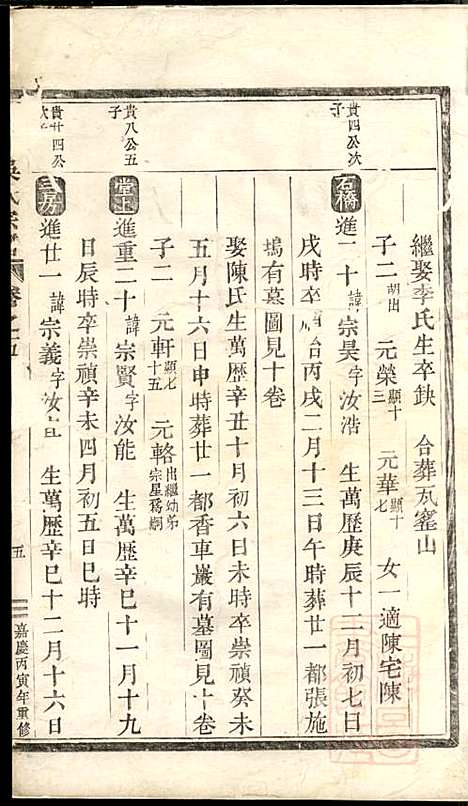 繼娶李氏生卒缺 合葬瓦窰山
子二 胡出 元榮 顯十三 元華 顯十七 女一適陳宅陳
貴四公次子
石橋 進二十 諱宗昊字汝浩 生萬歷庚辰十二月初七日
戌時卒 治丙戌二月十三日午時葬廿一都張施
塢有墓圖見十卷
娶陳氏生萬歷辛丑十月初六日未時卒崇禎癸未
五月十六日申時葬廿一都香車巖有墓圖見十卷
子二 元軒 顯七十五 元輅 出繼幼弟宗星為嗣
貴八公五子
堂上 進重二十 諱宗賢字汝能 生萬歷辛巳十一月十九
日辰時卒崇禎辛未四月初五日巳時
貴廿四公次子
三房 進廿一 諱宗義字汝 生萬歷辛巳十二月十六日
吳氏宗譜 卷之五
五
嘉慶丙寅年重修